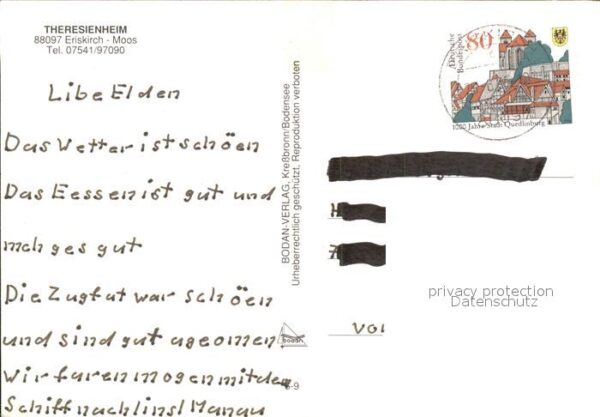 THERESIENHEIM
88097 Eriskirch - Moos
Tel. 07541/97090
Libe Elden
Das Wetter ist schöen
Das Eessen ist gut und
mah ges gut
Die Zugfat war schöen
und sind gut ageomen
wir faren mogen mit den
Schiff nach Insl Manau
BODAN-VERLAG, Kreßbronn/Bodensee
Urheberrechtlich geschützt. Reproduktion verboten
bodan
Deutsche
Bundespost
80
1000 Jahre Stadt Quedlinburg
privacy protection
Datenschutz